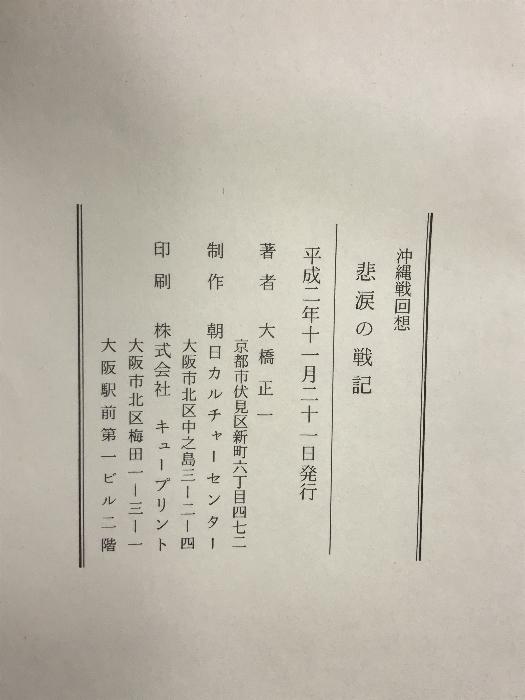 沖縄戦回想
悲涙の戦記
平成二年十一月二十一日発行
著者 大橋正一
京都市伏見区新町六丁目四七二
制作 朝日カルチャーセンター
大阪市北区中之島三ー二ー四
印刷 株式会社 キュープリント
大阪市北区梅田一ー三ー一
大阪駅前第一ビル二階